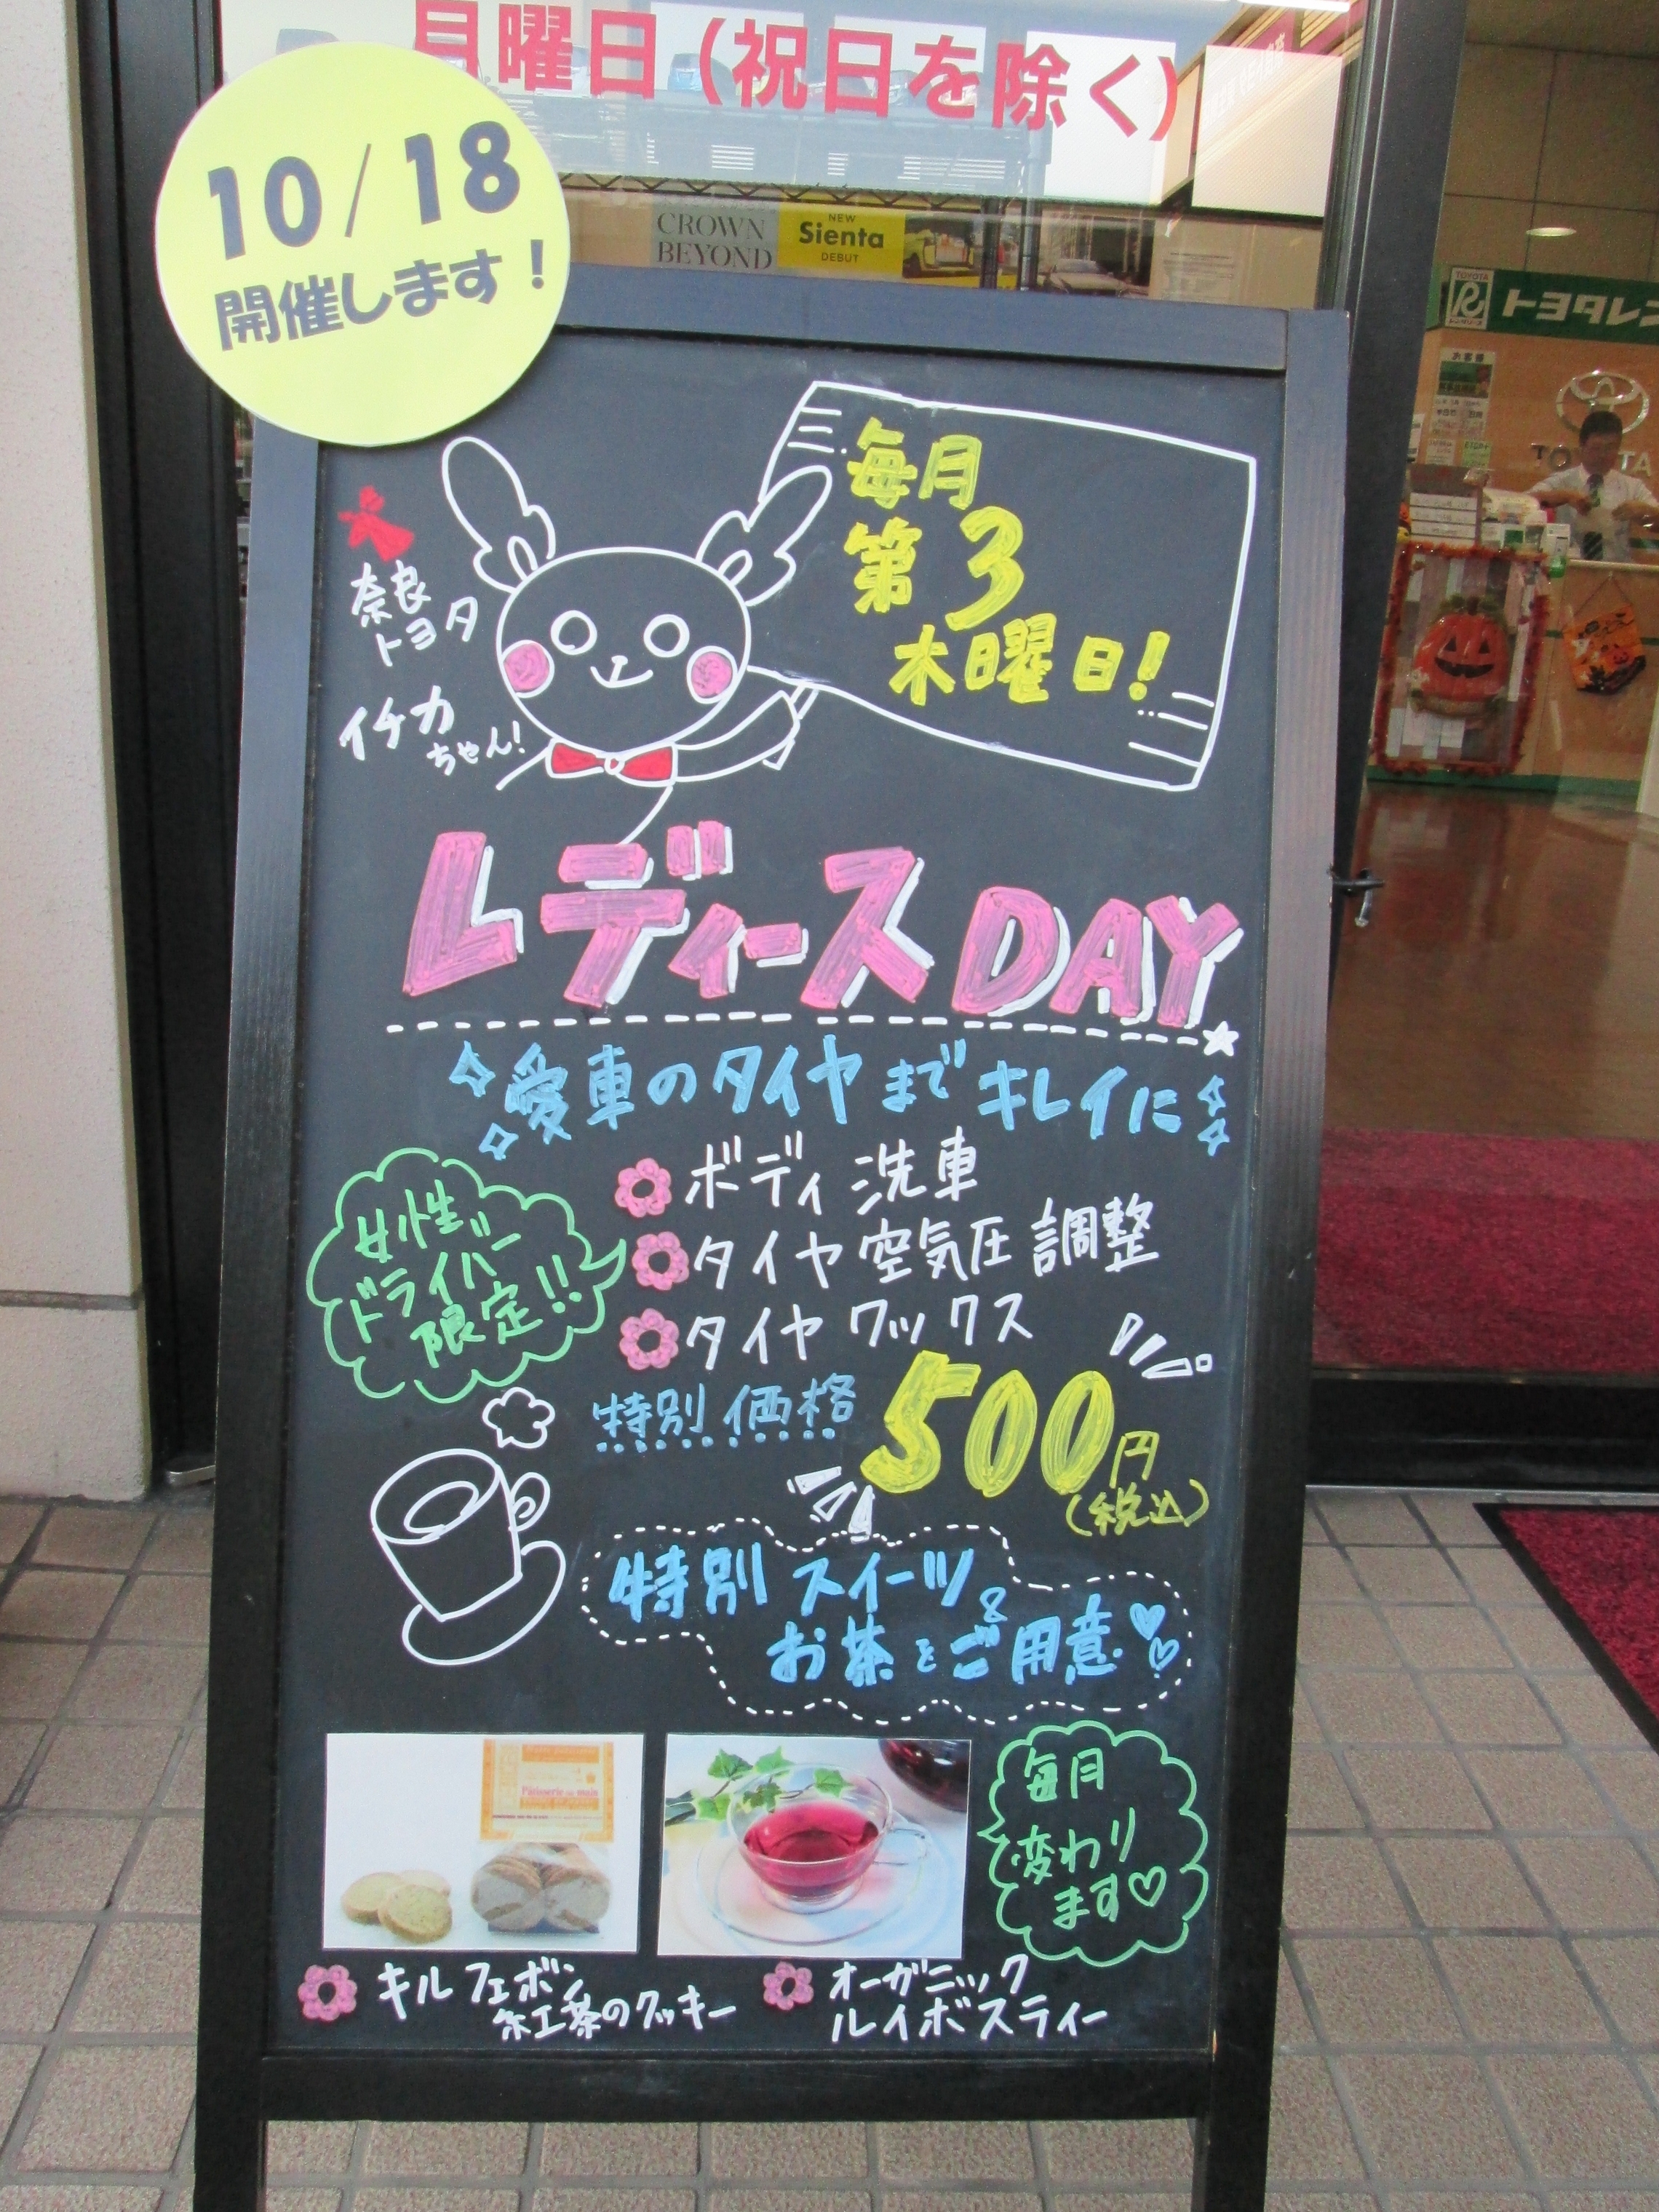 月曜日(祝日を除く)
10/18
開催します!
CROWN
BEYOND
NEW
Sienta
DEBUT
TOYOTA
トヨタレン
お客様
TOYOTA
毎月
第3
木曜日!
奈良
トヨタ
イチカ
ちゃん!
レディースDAY
愛車のタイヤまでキレイに
ボディ洗車
タイヤ空気圧調整
タイヤワックス
女性
ドライバー
限定!!
特別価格
500円
(税込)
特別スイーツ&
お茶をご用意
毎月
変わり
ます♡
キルフェボン
紅茶のクッキー
オーガニック
ルイボスティー